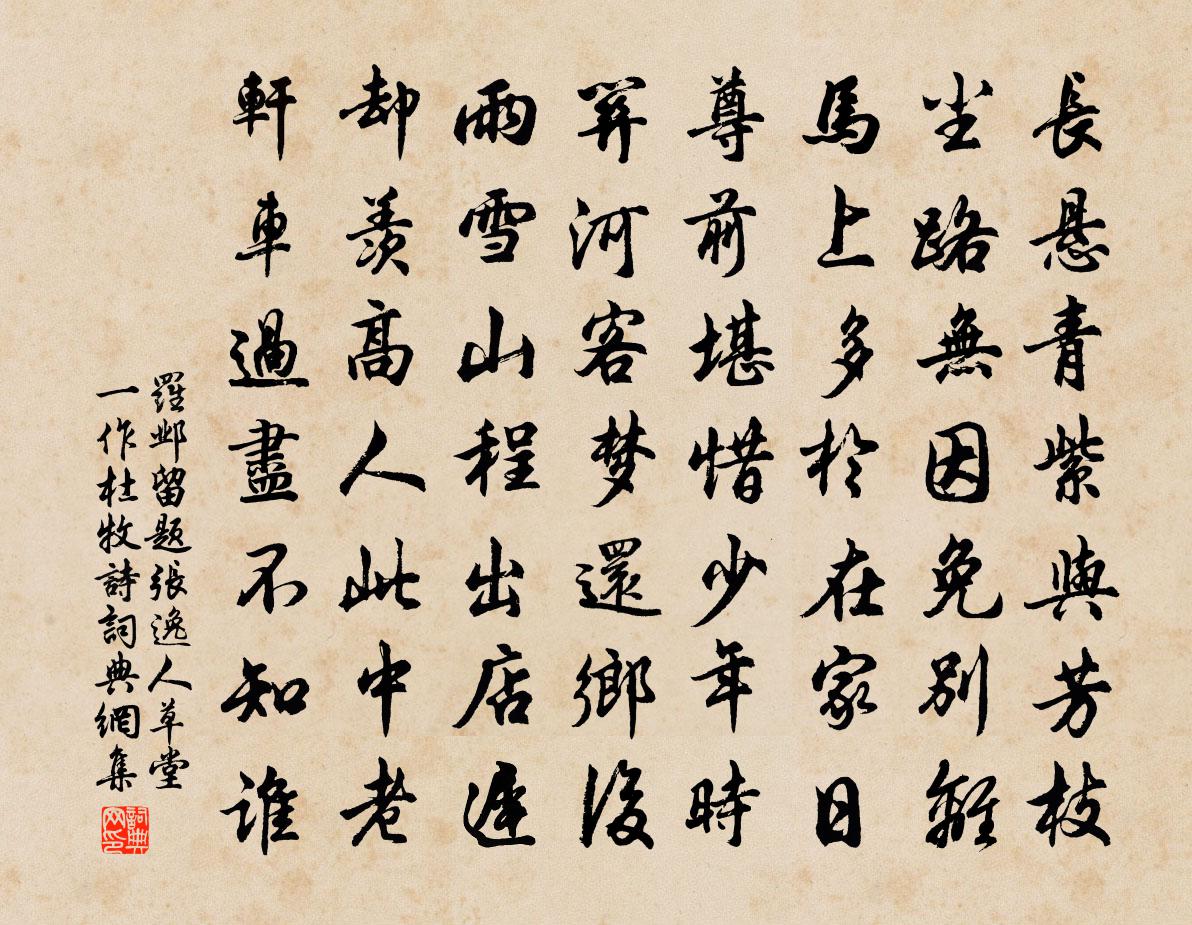 長懸青紫與芳枝
尘路無因免別離
馬上多於在家日
尊前堪惜少年時
關河客梦還鄉後
雨雪山程出店遲
却羨高人此中老
軒車過盡不知誰
羅邺留题張逸人草堂
一作杜牧詩詞典網集
詞典
网印